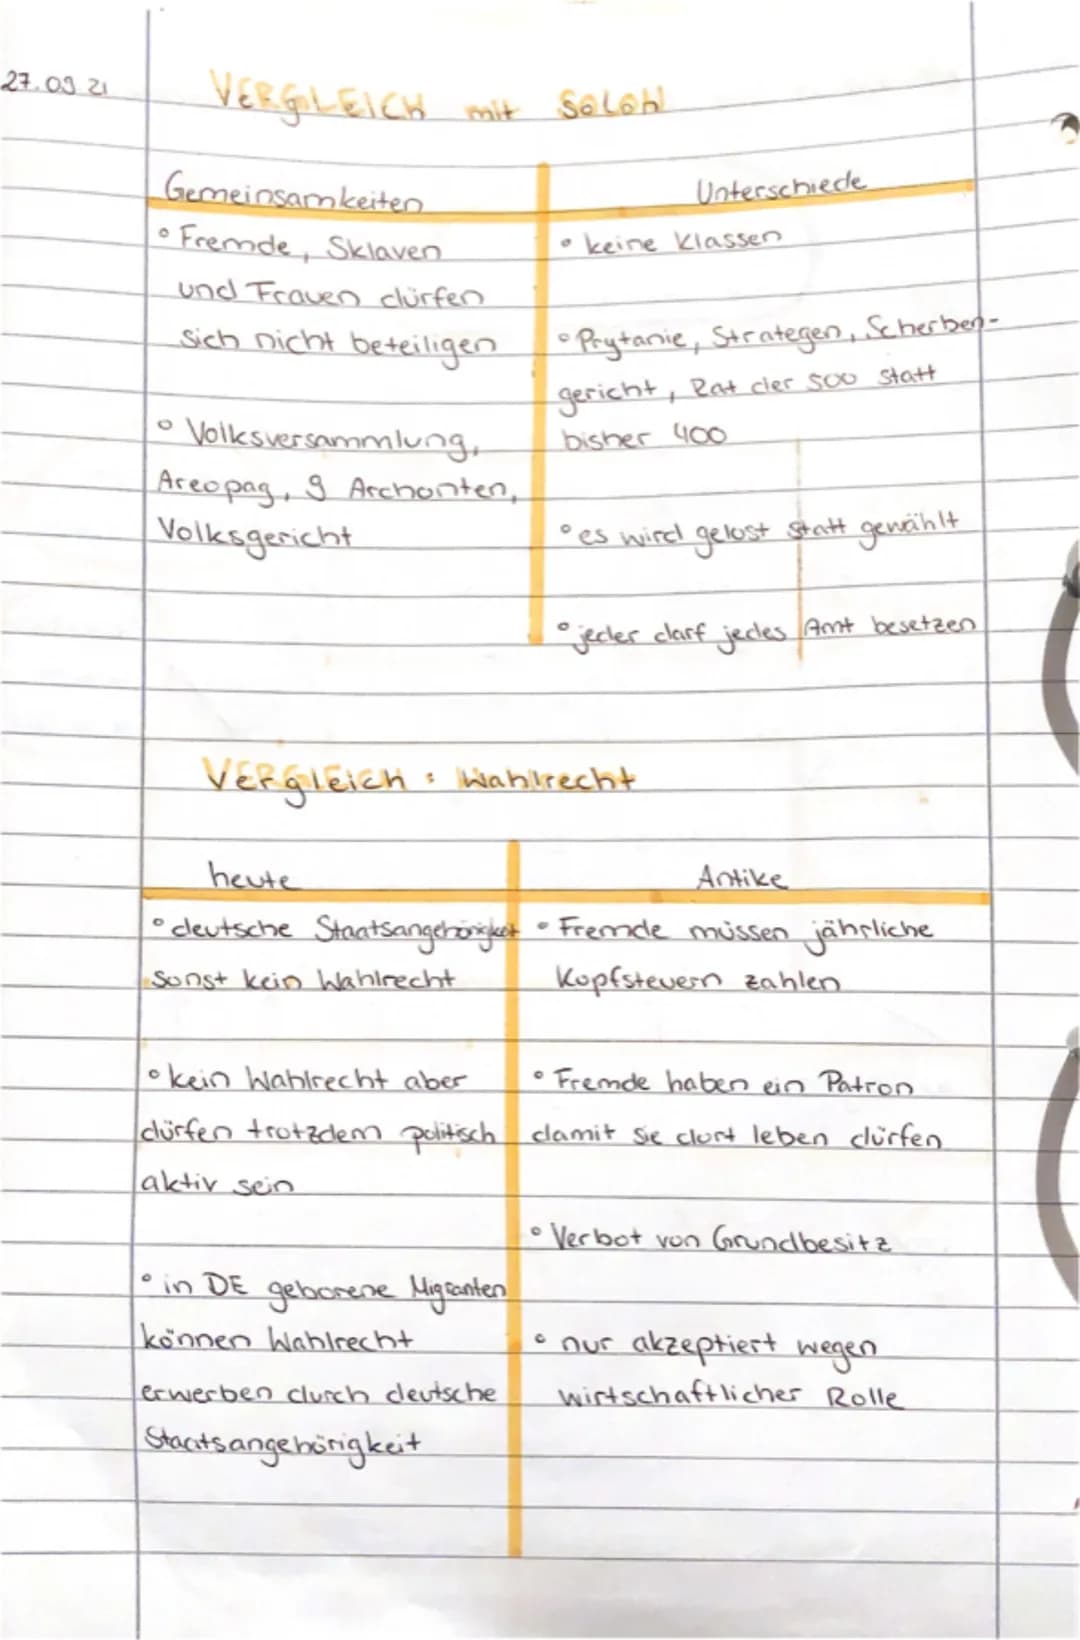 27.09 21
VERGLEICH mit SOLON
Gemeinsamkeiten
• Fremde, Sklaven
und Frauen dürfen
sich nicht beteiligen
• Volksversammlung,
Areopag, 9 Archonten,
Volksgericht
Unterschiede
• keine Klassen
• Prytanie, Strategen, Scherben-
gericht, Rat der 500 statt
bisher 400
• es wird gelost statt gewählt
• jeder darf jedes Amt besetzen
VERgleich : Wahlrecht
heute
• deutsche Staatsangehörigkeit
sonst kein Wahlrecht
• kein Wahlrecht aber
dürfen trotzdem politisch
aktiv sein
• in DE geborene Migranten
können Wahlrecht
erwerben durch deutsche
Staatsangehörigkeit
Antike
• Fremde müssen jährliche
Kopfsteuern zahlen
• Fremde haben ein Patron
damit sie dort leben dürfen
• Verbot von Grundbesitz
• nur akzeptiert wegen
wirtschaftlicher Rolle